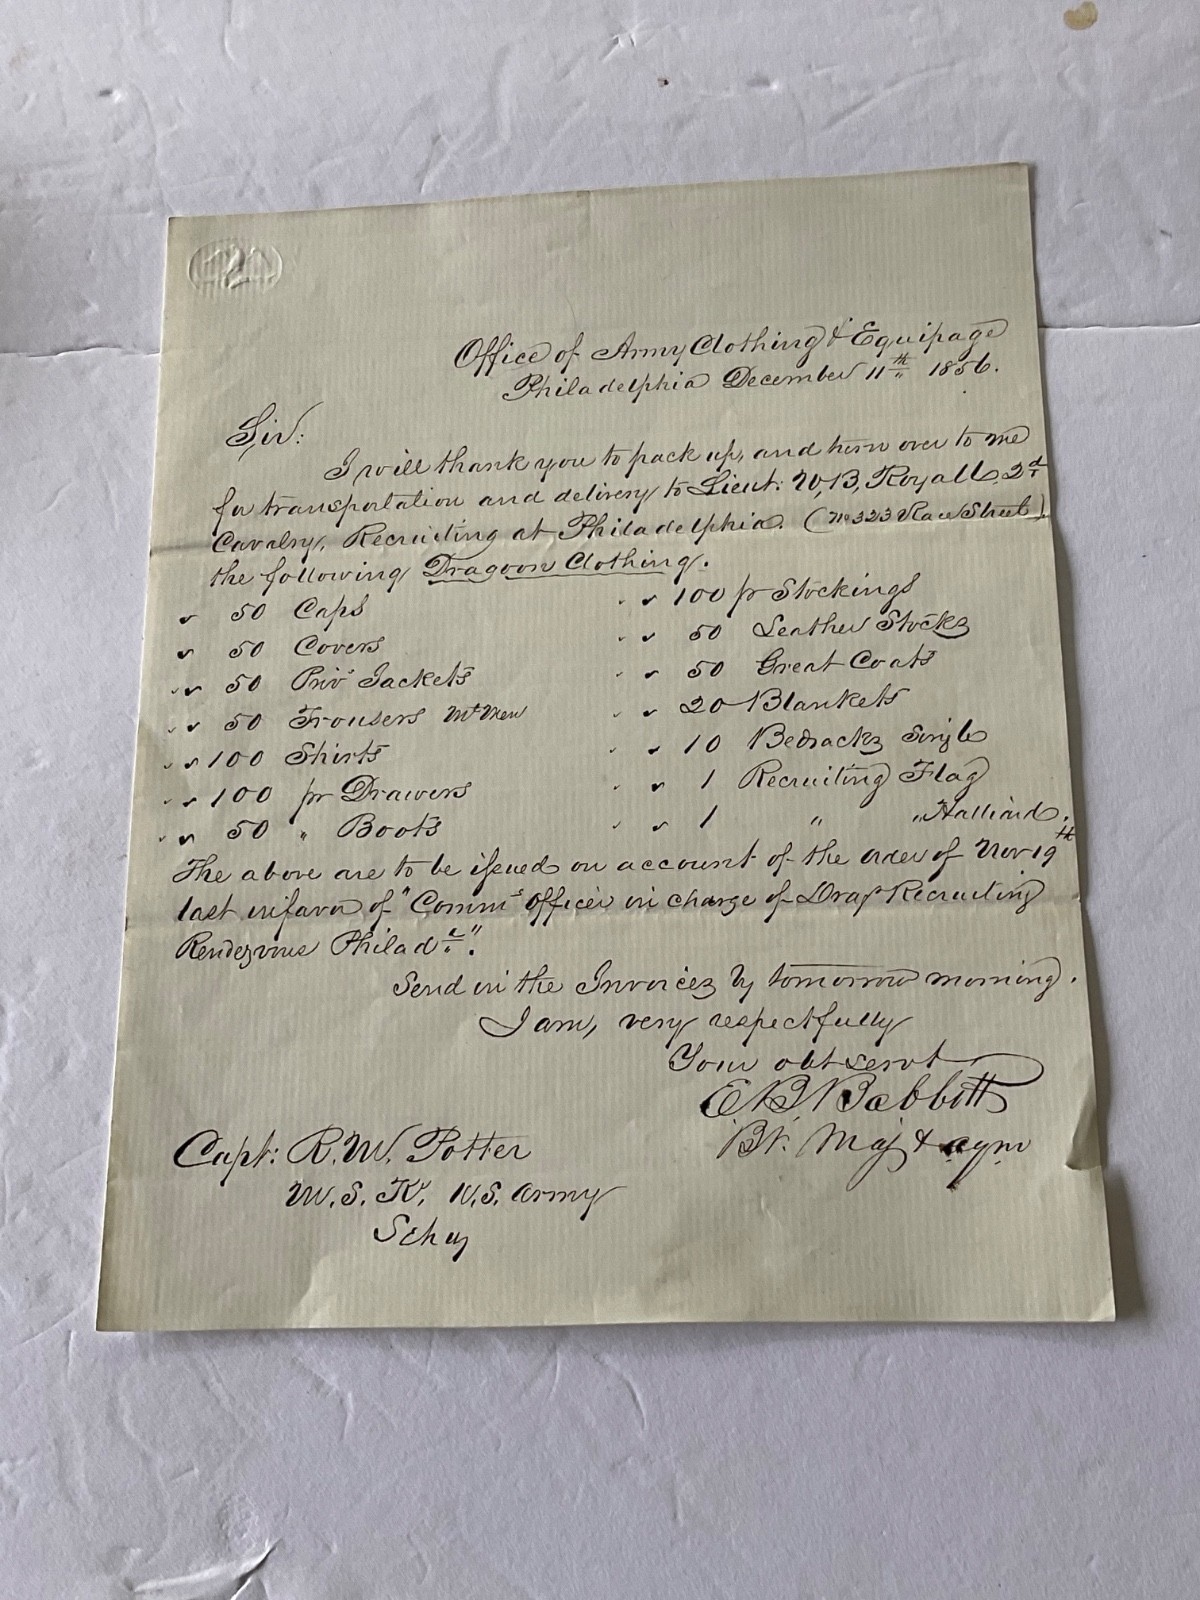 Office of Army Clothing & Equipage
Philadelphia December 11th 1856.
Sir:
I will thank you to pack up, and turn over to me
for transportation and delivery to Lieut: W, B, Royall, 2d
Cavalry, Recruiting at Philadelphia. (No 323 Race Street)
the following Dragoon Clothing.
50 Caps
50 Covers
50 Priv. Jackets
50 Trousers Mt Men
100 Shirts
100 pr Drawers
50 " Boots
100 pr Stockings
50 Leather Stocks
50 Great Coats
20 Blankets
10 Bedsacks Single
1 Recruiting Flag
1 " " Halliard.
The above are to be issued on account of the order of Nov 19th
last in favor of "Commg Officer in charge of Drag Recruiting
Rendezvous Philada."
Send in the Invoices by tomorrow morning.
I am, very respectfully
Your obt servt
E B Babbitt
Bt. Maj & aqm
Capt: R. W. Potter
M. S. K. U. S. Army
Schuy